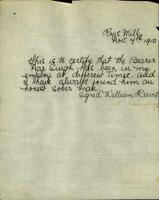 Roys Mills
Nov. 7th 1910
This is to certify that the Bearer
Kar Singh has been in my
employ at different times and
I have always found him an
honest sober man
signed William Davis